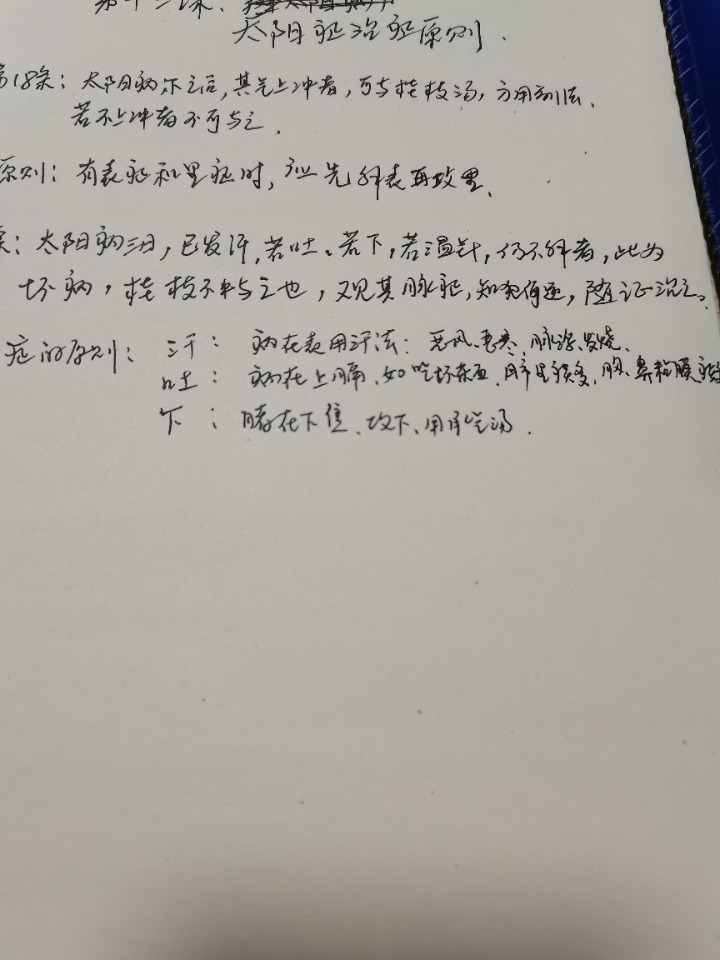 第十二课、
太阳证治证原则.
第18条: 太阳病下之后, 其气上冲者, 可与桂枝汤, 方用前法、
若不上冲者不可与之.
原则: 有表证和里证时, 须先解表再攻里、
条: 太阳病三日, 已发汗, 若吐、若下, 若温针, 仍不解者, 此为
坏病, 桂枝不中与之也, 又见其脉证, 知犯何逆, 随证治之。
症的原则: 汗: 病在表用汗法: 恶风、恶寒、脉浮、发烧、
吐: 病在上膈、如吃坏东西、胸、鼻粘膜
下: 在下焦、攻下、用承气汤.